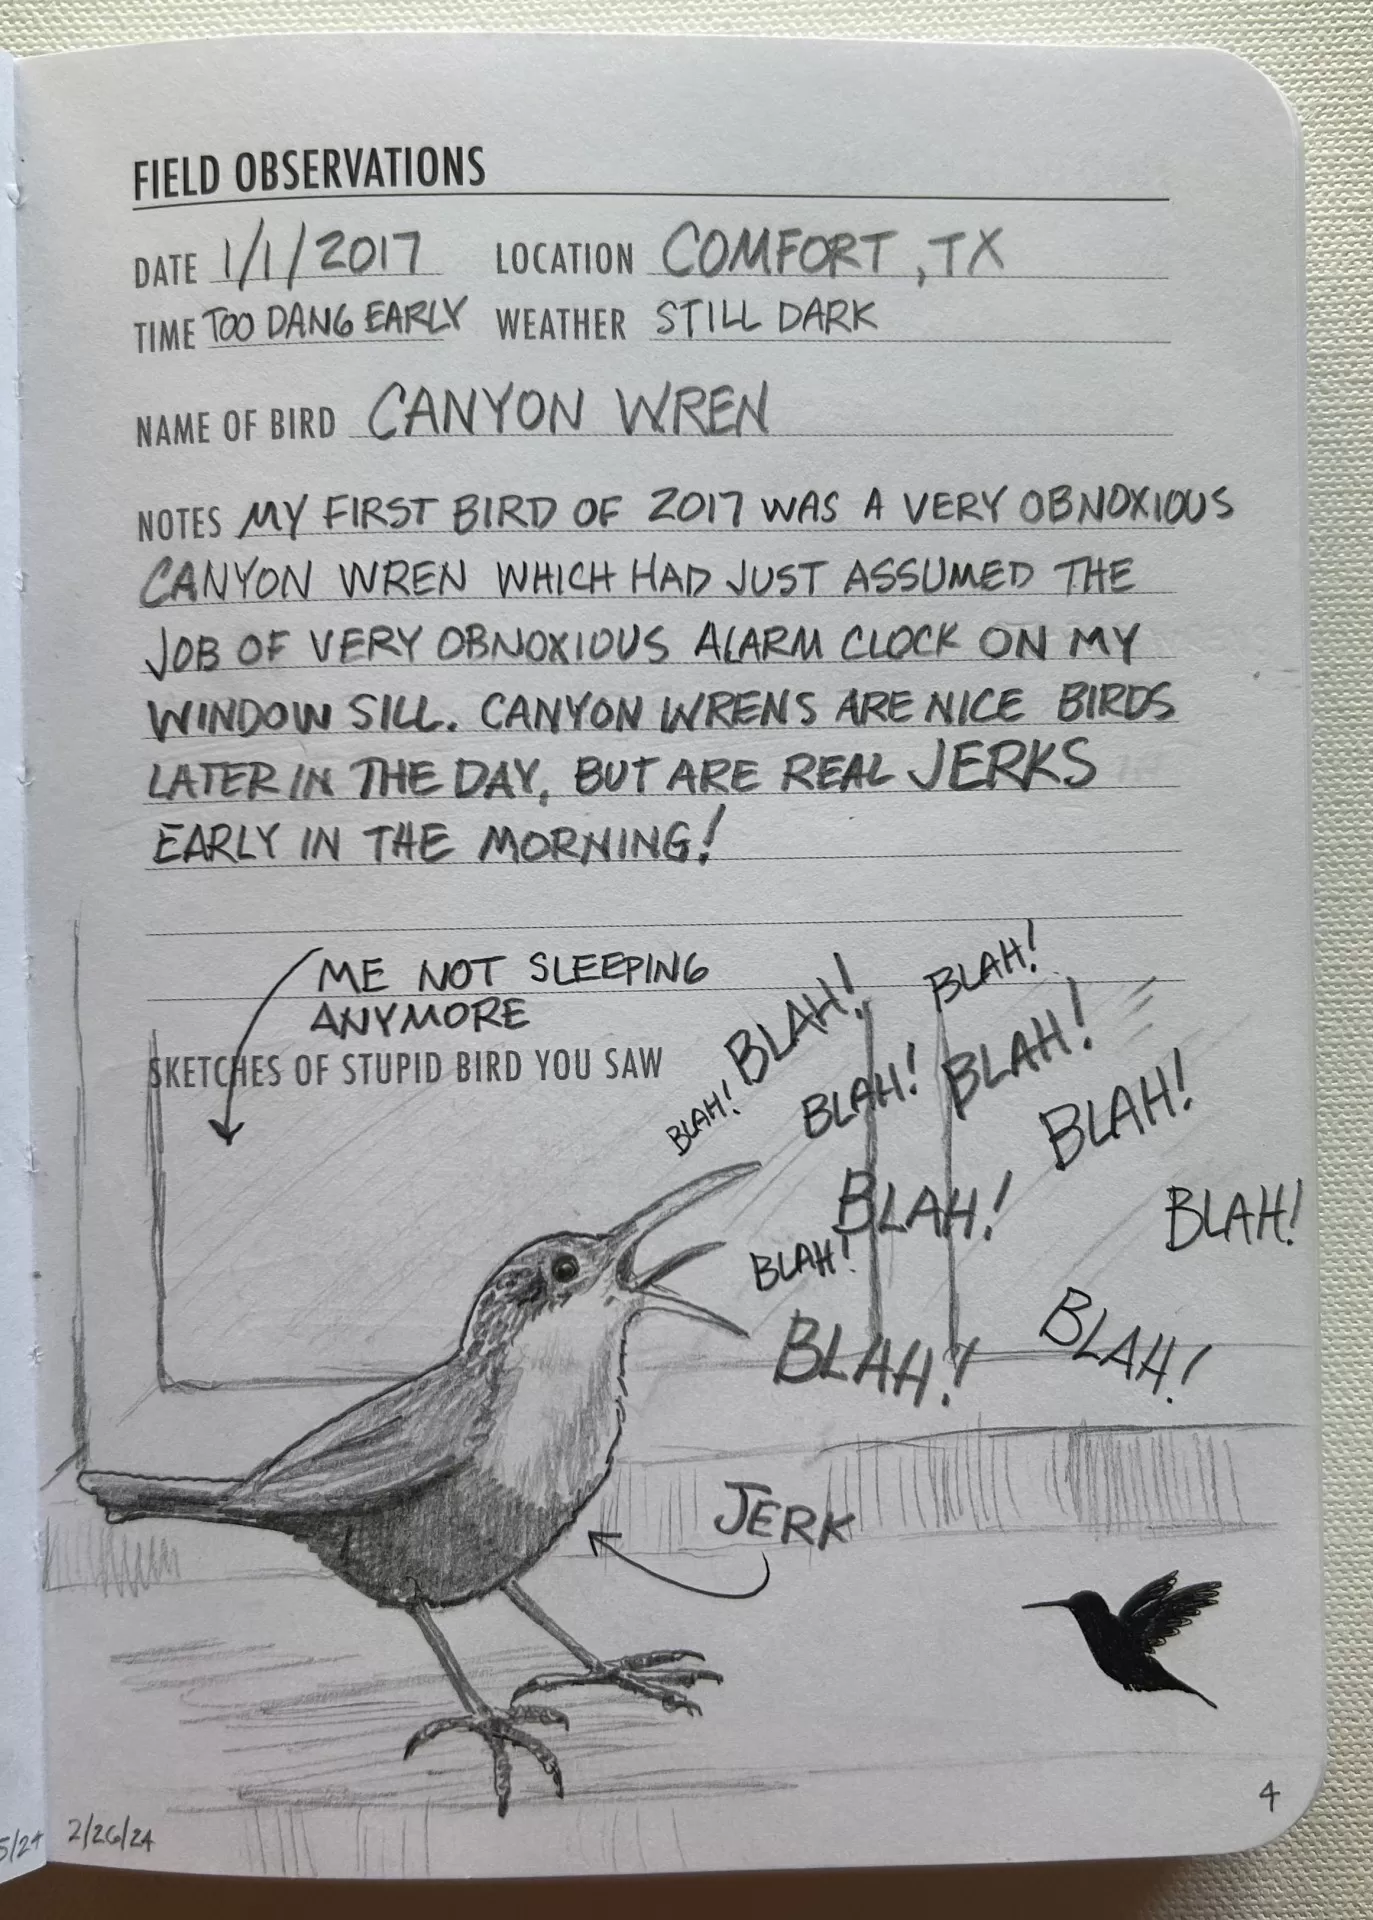 FIELD OBSERVATIONS
DATE 1/1/2017 LOCATION COMFORT, TX
TIME TOO DANG EARLY WEATHER STILL DARK
NAME OF BIRD CANYON WREN
NOTES MY FIRST BIRD OF 2017 WAS A VERY OBNOXIOUS
CANYON WREN WHICH HAD JUST ASSUMED THE
JOB OF VERY OBNOXIOUS ALARM CLOCK ON MY
WINDOW SILL. CANYON WRENS ARE NICE BIRDS
LATER IN THE DAY, BUT ARE REAL JERKS
EARLY IN THE MORNING!
ME NOT SLEEPING
ANYMORE
SKETCHES OF STUPID BIRD YOU SAW
BLAH!
BLAH!
BLAH!
BLAH!
BLAH!
BLAH!
BLAH!
BLAH!
BLAH!
BLAH!
BLAH!
JERK
4
5/24
2/26/24